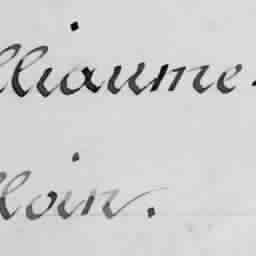 lliaume
lloin.